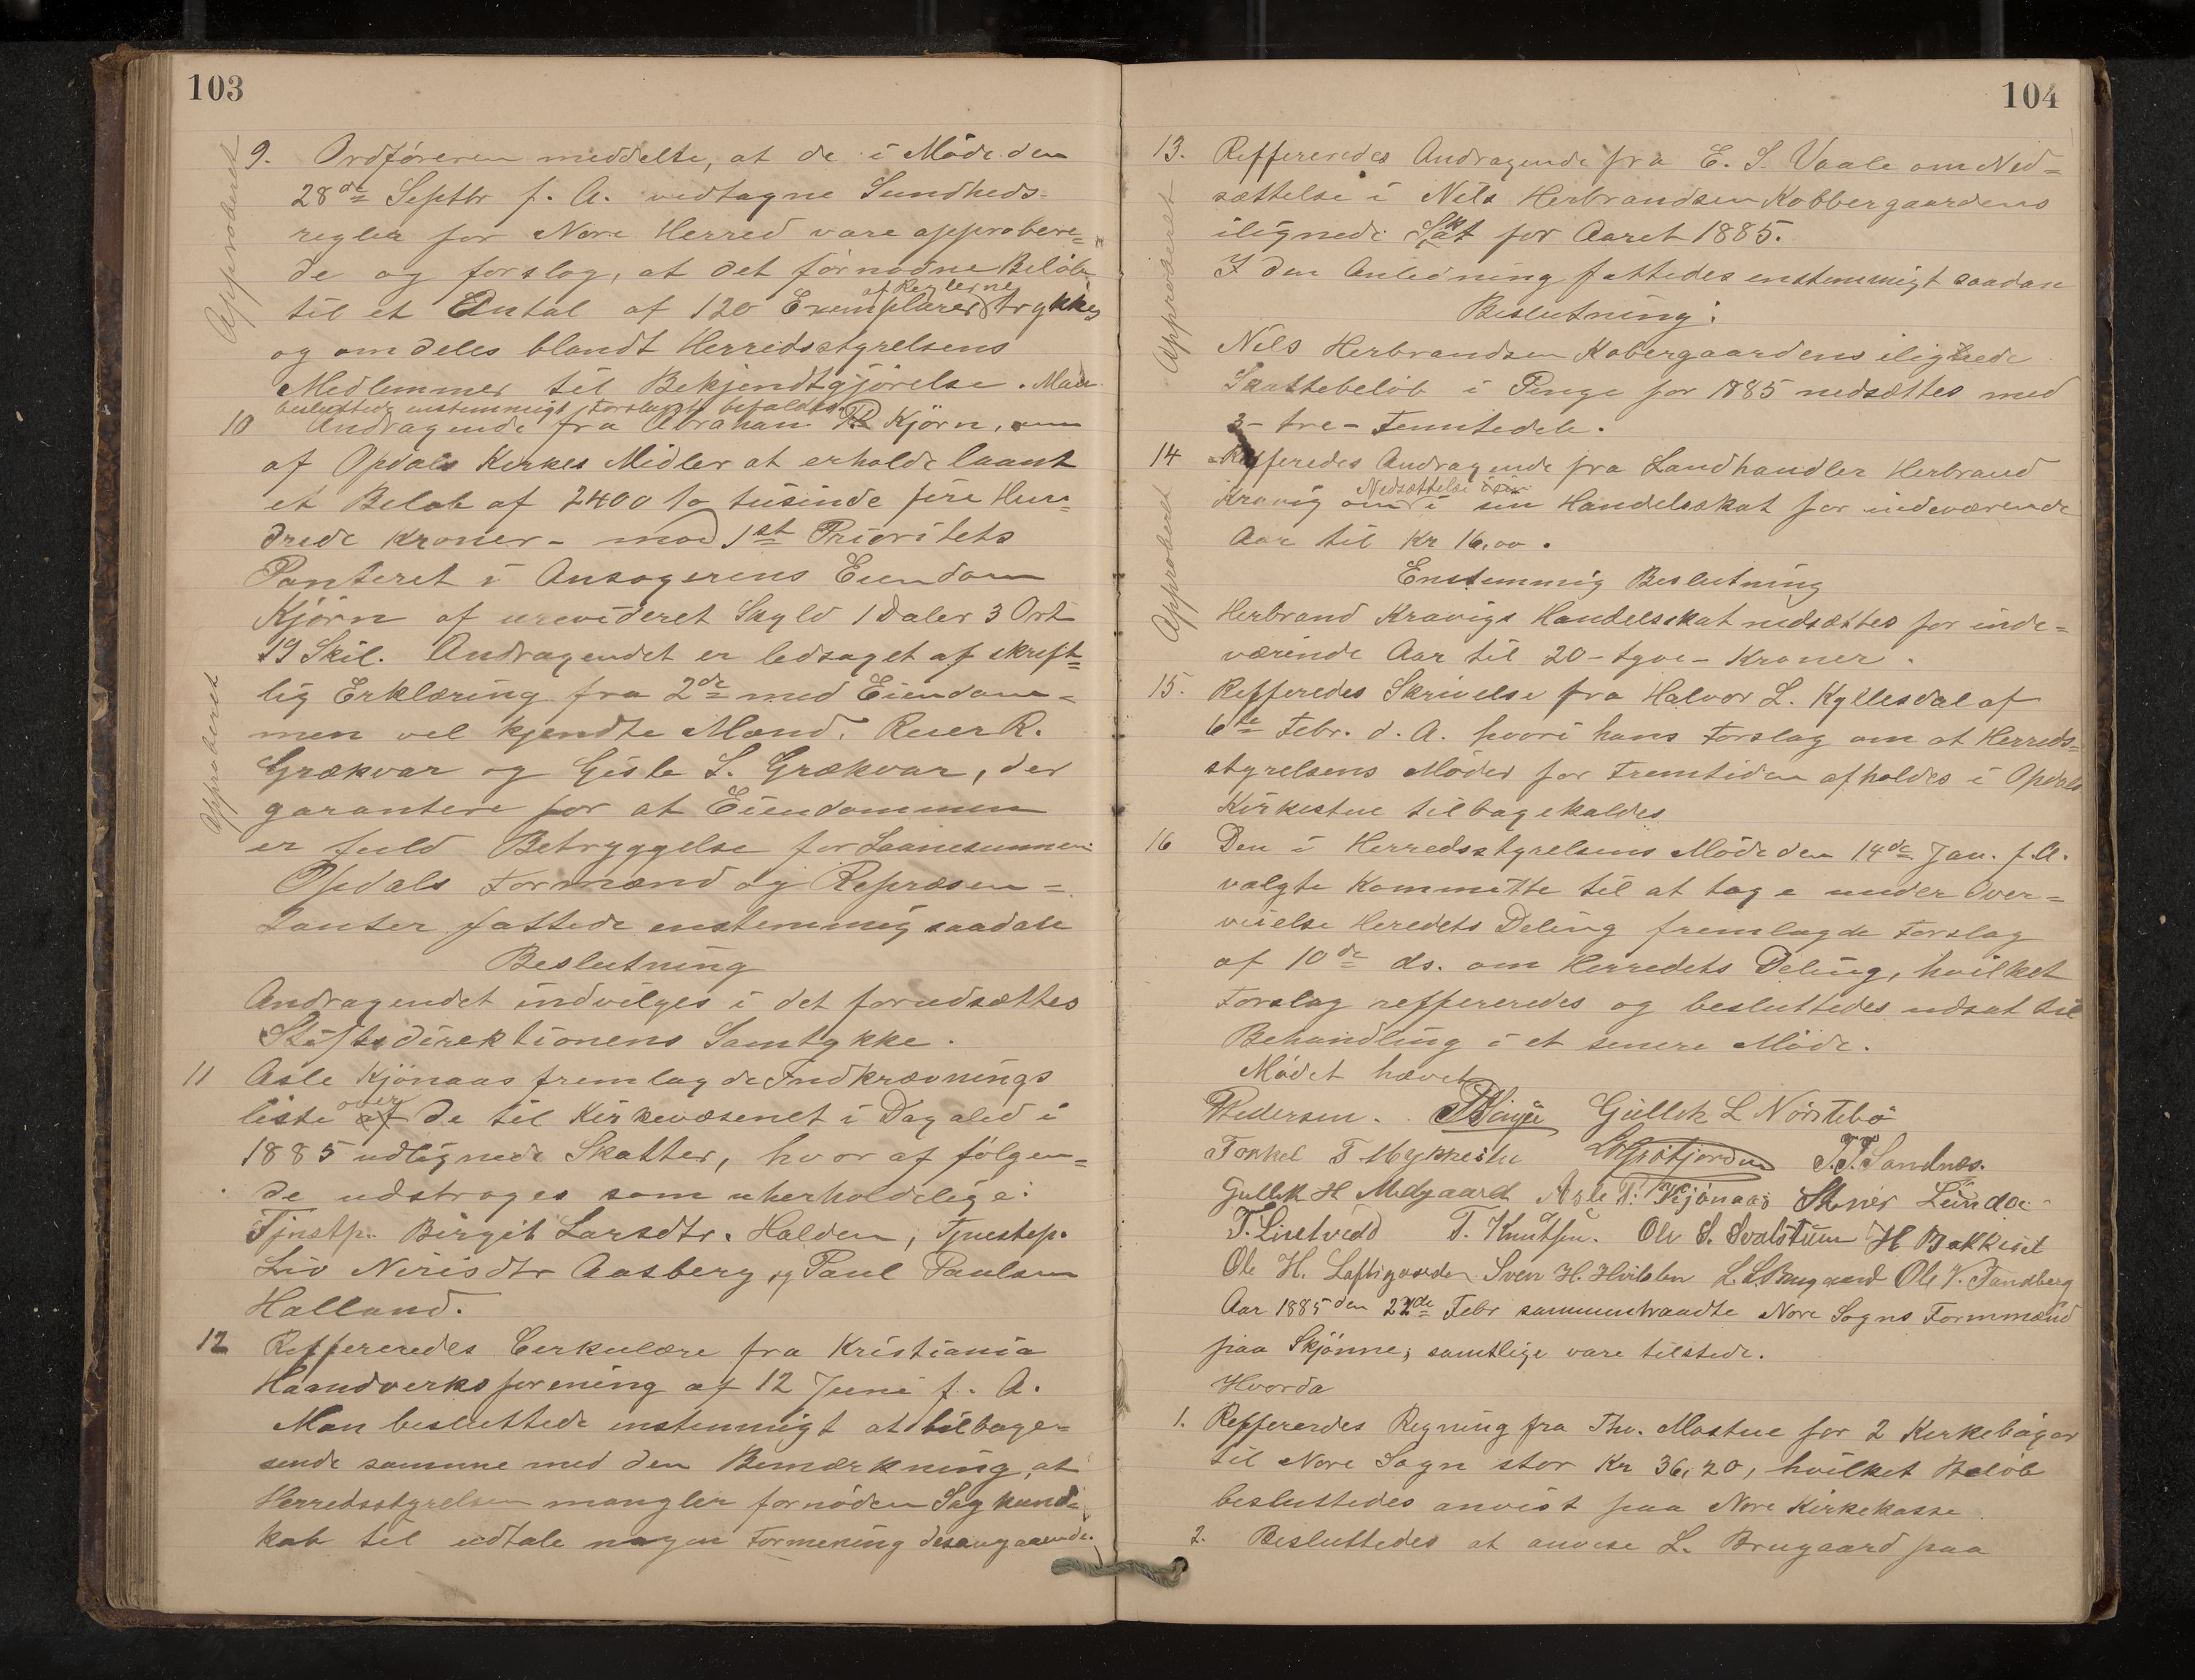 103
Approberet
9. Ordföreren meddelte, at de i Möde den
28de Septbr f. A. vedtagne Sundheds-
regler for Nore Herred vare approbere=
de og forslog, at det fornødne Belöb
til et Antal af 120 Exemplarer af Reglerne trykkes
og omdeles blandt Herredsstyrelsens
Medlemmer til Bekjendtgjörelse. Man
besluttede enstemmigt Forslaget befuldt
10 Andragende fra Abraham P. Kjörn, om
af Opdals Kirkes Midler at erholde laant
et Beløb af 2400 to tusinde fire Hun=
drede Kroner - mod 1st Prioritets
Panteret i Ansøgerens Eiendom
Kjörn af urevideret Skyld 1 Daler 3 Ort
19 Skil. Andragendet er ledsaget af skrift=
lig Erklæring fra 2de med Eiendom=
men vel kjendte Mænd, Reier R.
Grækvar og Gisle L. Grækvar, der
garantere for at Eiendommen
er fuld Betryggelse for Laanesummen
Approberet
Opdals Formænd og Repræsen=
tanter fattede enstemmig saadan
Beslutning
Andragendet indvilges i det forudsættes
Stiftsdirektionens Samtykke.
11 Asle Kjönaas fremlagde Indkrævnings
liste over de til Kirkevæsenet i Dagalid i
1885 udlignede Skatter, hvor af fölgen=
de udstroges som uherholdelige:
Tjnstp. Birgit Larsdtr. Halden, Tjnestep.
Liv Nirisdtr Aasberg og Paul Paulsen
Halland.
12 Reffereredes Cirkulære fra Kristiania
Haandverksforening af 12 Juni f. A.
Man besluttede enstemmigt at tilbage-
sende samme med den Bemærkning, at
Herredsstyrelsen mangler fornöden Sagkund=
kab til udtale nogen Formening desangaaende.
104
13. Reffereredes Andragende fra E. S. Vaale om Ned=
sættelse i Nils Herbrandsen Kobbergaardens
ilignede Skat for Aaret 1885.
I den Anledning fattedes enstemmigt saadan
Beslutning:
Approberet
Nils Herbrandsen Kobergaardens ilignede
Skattebelöb i Penge for 1885 nedsættes med
3 - tre - Femtedele.
14 Refferedes Andragende fra Landhandler Herbrand
Kravig om Nedsættelse i sin Handelsskat for indeværende
Aar til Kr 16,00.
Enstemmig Beslutning
Approberet
Herbrand Kravigs Handelsskat nedsættes for inde=
værende Aar til 20 - tyve - Kroner.
15. Refferedes Skrivelse fra Halvor L. Kyllesdal af
6te Febr. d. A. hvori hans Forslag om at Herreds=
styrelsens Möder for Fremtiden afholdes i Opdals
Kirkestue tilbagekaldes
16 Den i Herredsstyrelsens Möde den 14de Jan. f. A.
valgte Kommitte til at tage under Over=
veielse Heredets Deling fremlagde Forslag
af 10de ds. om Herredets Deling, hvilket
Forslag reffereredes og besluttedes udsat til
Behandling i et senere Möde.
Mödet hævet
Pedersen. Gullek L Nörstebö
Torkel T Mykkestu T.T. Sandnæs.
Gullik H Medgaard Asle T. Kjönaas Stener Lunde
T. Lisetvedd T. Knutsen. Ole S. Svalstuen H Bakkiset
Ole H. Loftsgaarden Sven H. Hvilsten L. L. Brugaard Ole V. Tandberg
Aar 1885 den 22de Febr sammentraadte Nore Sogns Formmænd
paa Skjönne; samtlige vare tilstede.
Hvorda
1. Reffererdes Regning fra Thv. Mastue for 2 Kirkebøger
til Nore Sogn stor Kr 36,20, hvilket Belöb
besluttedes anvist paa Nore Kirkekasse
2. Besluttedes at anvise L. Brugaard paa